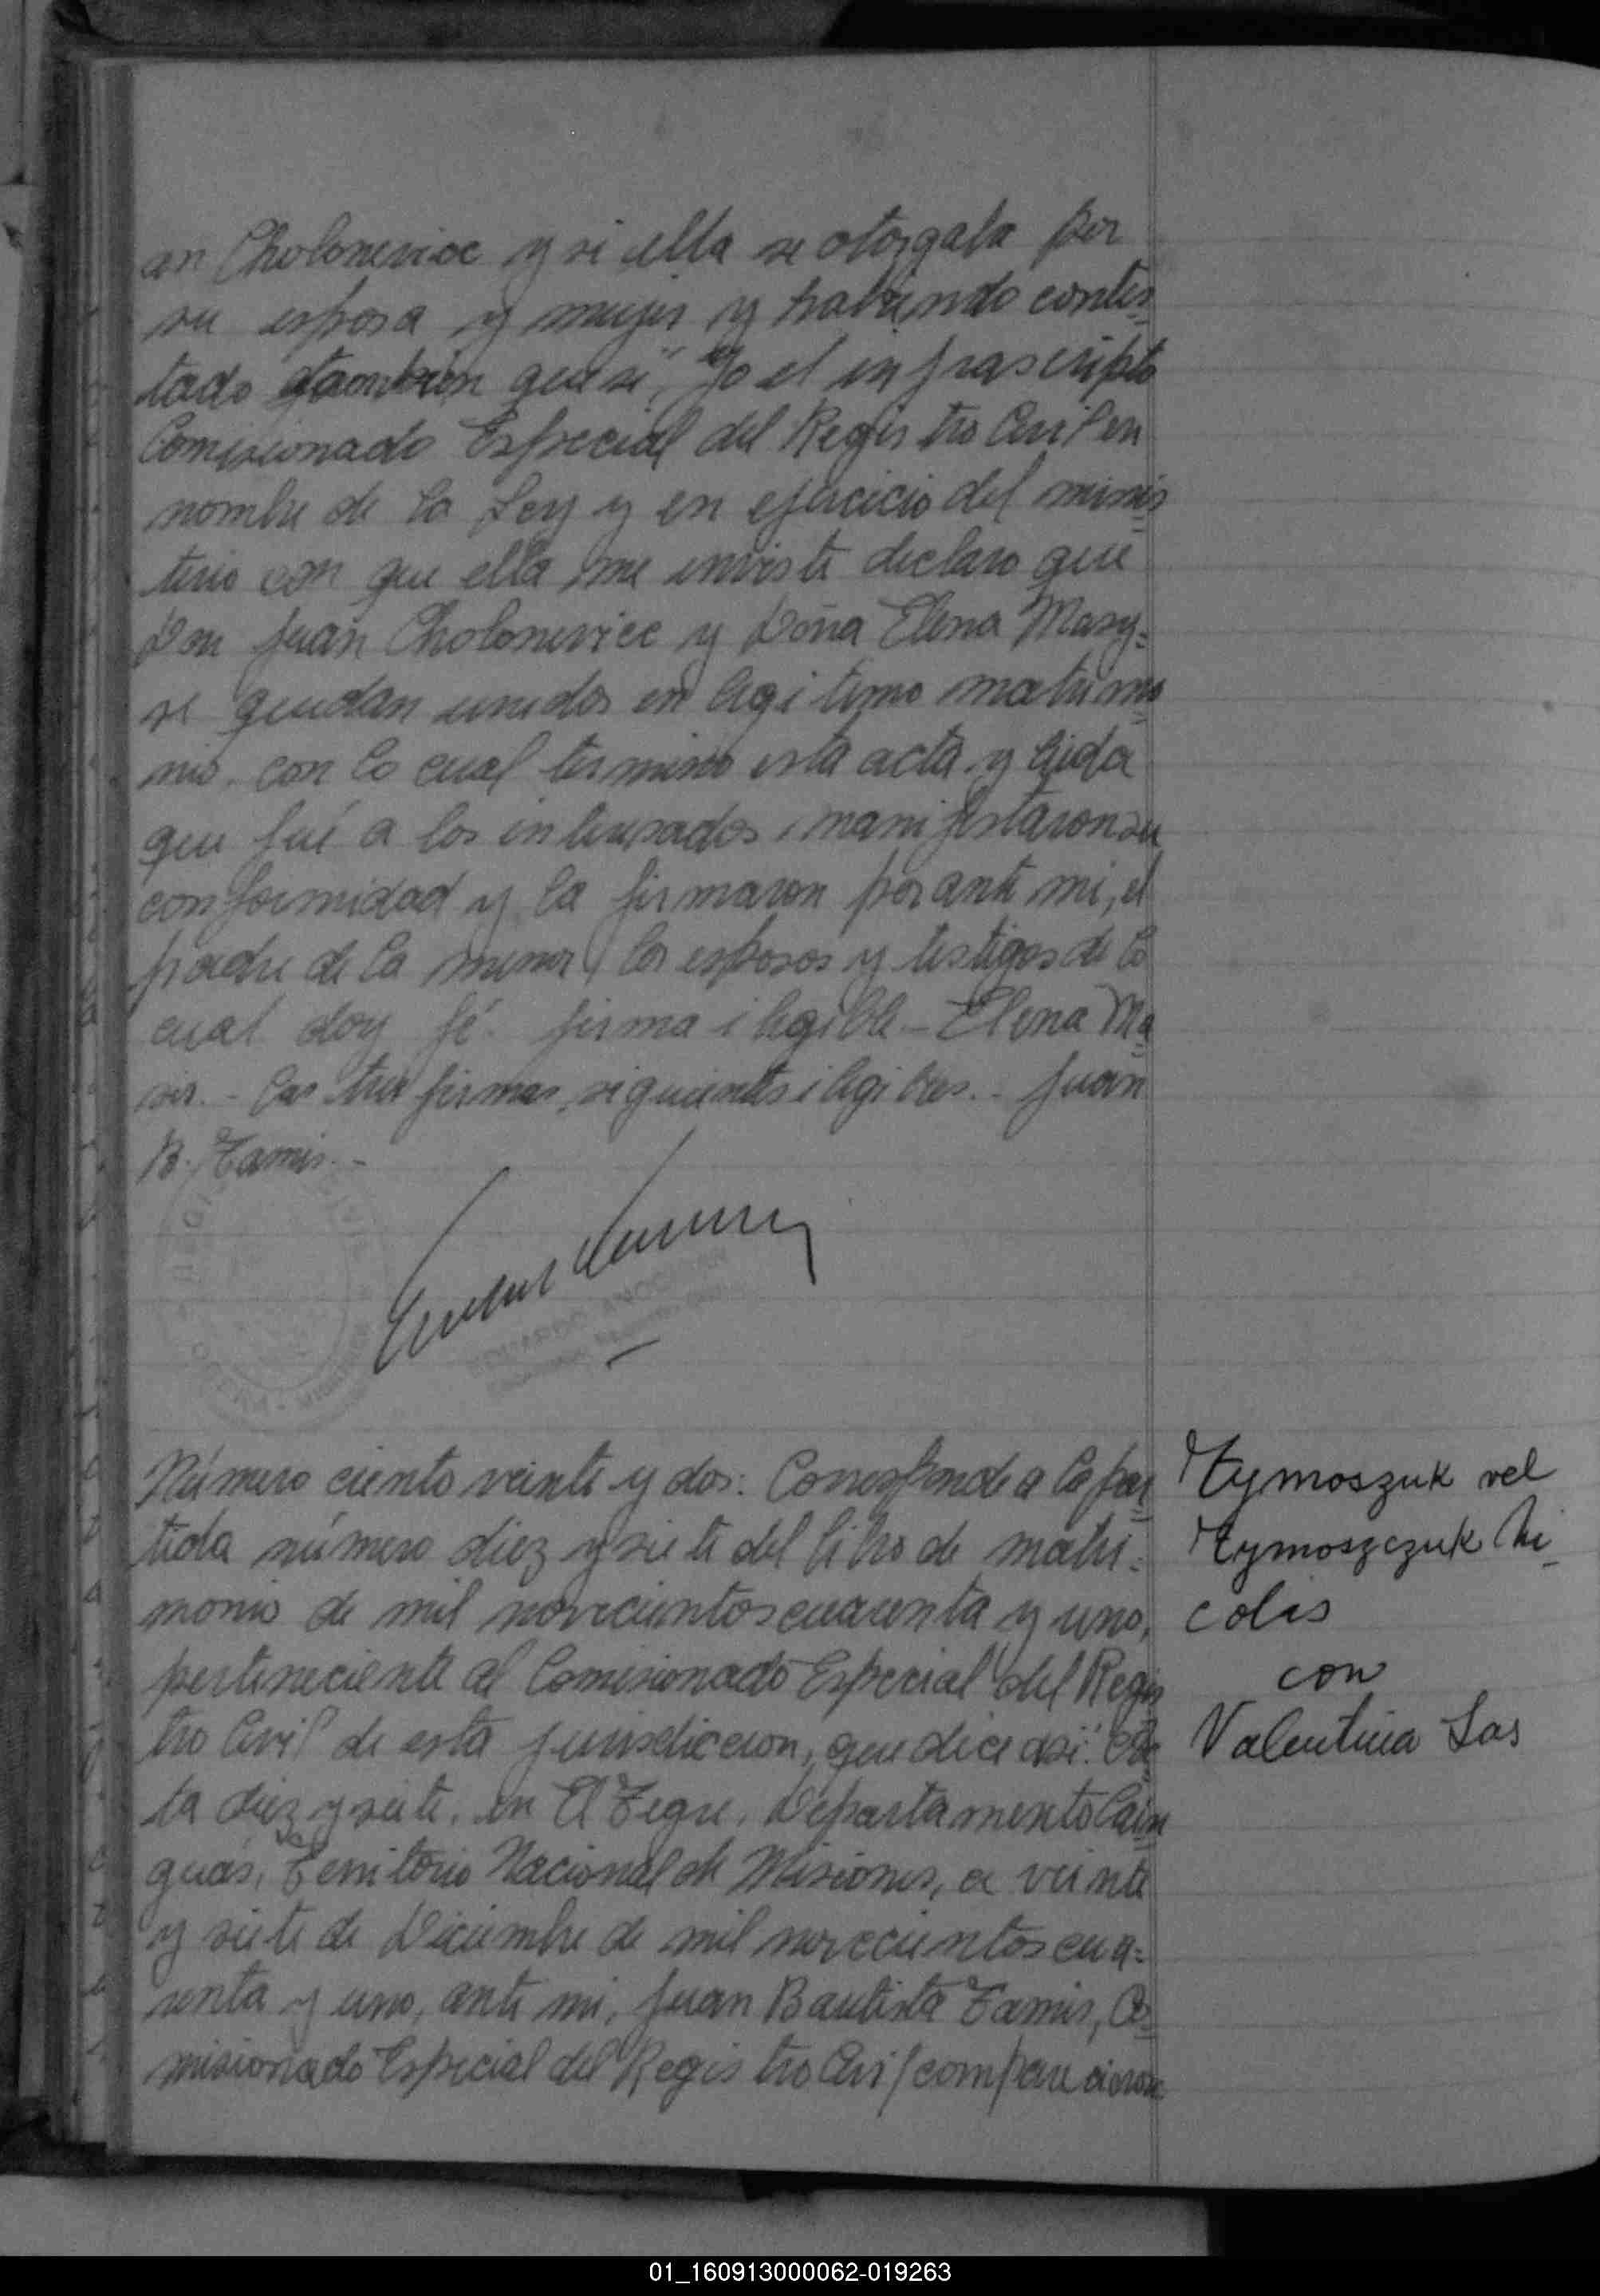 an Cholonevice y si ella se otorgaba por
su esposa y mujer y habiendo contes=
tado tambien que si, "Yo el infrascripto
Comisionado Especial del Registro Civil en
nombre de la Ley y en ejercicio del minis=
terio con que ella me inviste declaro que
Don Juan Cholonevice y Doña Elena Masy=
se quedan unidos en legitimo matrimo=
nio. con lo cual termino esta acta y leida
que fué a los interesados, manifestaron su
conformidad y la firmaron por ante mi, el
padre de la menor, los esposos y testigos de lo
cual doy fé. firma ilegible - Elena Ma=
sir. - las tres firmas siguientes ilegibles. - Juan
B. Tamis. -
EDUARDO
Número ciento veinte y dos: Corresponde a la par=
tida número diez y siete del libro de matri=
monio de mil novecientos cuarenta y uno,
perteneciente al Comisionado Especial del Regis=
tro Civil de esta jurisdiccion, que dice asi: "Ac=
ta diez y siete. en El Tigre, Departamento Cain=
guás, Territorio Nacional de Misiones, a veinte
y siete de Diciembre de mil novecientos cua=
renta y uno, ante mi, Juan Bautista Tamis, Co=
misionado Especial del Registro Civil comparecieron
Tymoszuk vel
Tymoszczuk Ni=
colás
con
Valentina Sas
01_160913000062-019263